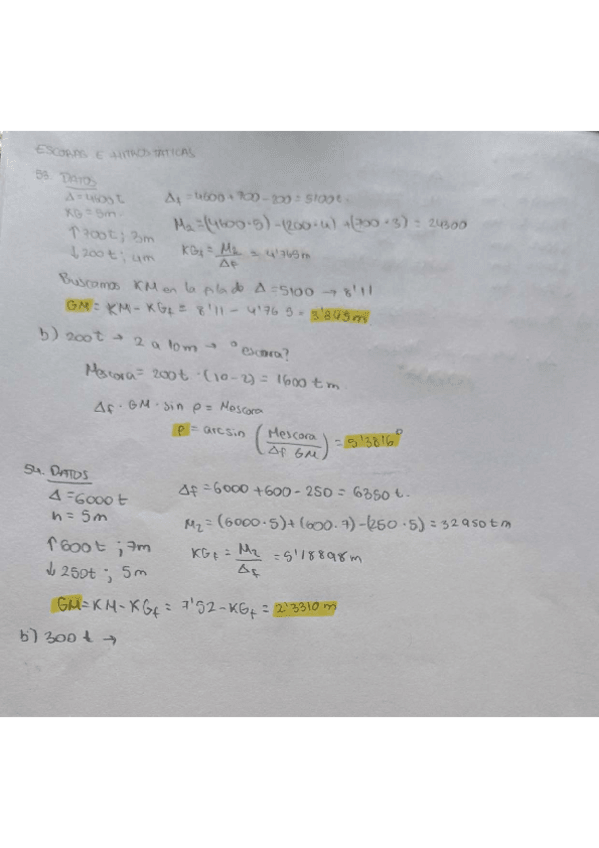 ESCORAS E HIDROSTATICAS
53. DATOS
Δ=4600t
KG = 5m
↑700t; 3m
↓200t; 4m
Δf = 4600+700-200=5100t.
M2=(4600·5)-(200·4)+(700·3) = 24300
KGf = M2/Δf = 4'765m
Buscamos KM en la Δ=5100 → 8'11
GM = KM - KGf = 8'11 - 4'765 = 3'345m
b) 200t → 2 a 10m → º escora?
Mescora = 200t · (10-2) = 1600 t m.
Δf · GM · sin ρ = Mescora
ρ = arcsin (Mescora / Δf GM) = 5'3816º
54. DATOS
Δ=6000t
h = 5m
↑600t; 7m
↓250t; 5m
Δf = 6000+600-250 = 6350t.
M2 = (6000·5)+(600·7)-(250·5) = 32950tm
KGf = M2/Δf = 5'18898m
GM = KM - KGf = 7'52 - KGf = 2'3310m
b) 300t →